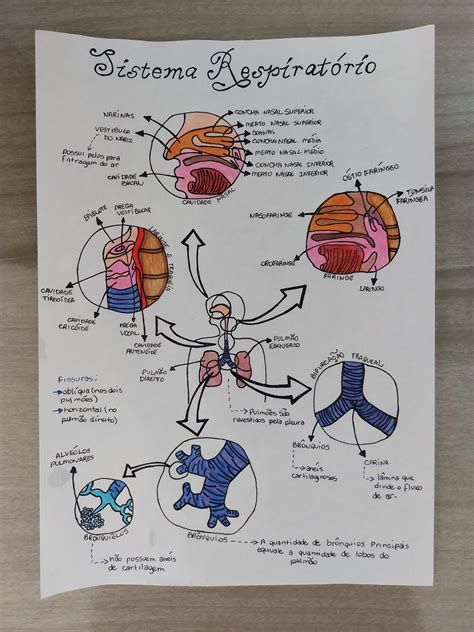 Sistema Respiratório
NARINAS
VESTÍBULO
DO NARIZ
POSSUI PELOS PARA
FILTRAGEM DO AR
CAVIDADE
BUCAL
CONCHA NASAL SUPERIOR
MEATO NASAL SUPERIOR
COANAS
CONCHA NASAL MÉDIA
MEATO NASAL MÉDIO
CONCHA NASAL INFERIOR
MEATO NASAL INFERIOR
CAVIDADE NASAL
ÓSTIO FARÍNGEO
TONSILA
FARÍNGEA
NASOFARINGE
OROFARINGE
FARINGE
LARINGO
EPIGLOTE
PREGA
VESTIBULAR
LARINGE E TRAQUEIA
CAVIDADE
TIREÓIDEA
CAVIDADE
CRICÓIDE
PREGA
VOCAL
CAVIDADE
PULMÃO
ESQUERDO
PULMÃO
DIREITO
PULMÕES SÃO
REVESTIDOS PELA PLEURA
FISSURAS:
OBLÍQUA (NOS DOIS
PULMÕES)
HORIZONTAL (NO
PULMÃO DIREITO)
BIFURCAÇÃO TRAQUEAL
BRÔNQUIOS
ANÉIS
CARTILAGINOSOS
CARINA
LÂMINA QUE
DIVIDE O FLUXO
DE AR.
ALVÉOLOS
PULMONARES
BRONQUÍOLOS
NÃO POSSUEM ANÉIS
DE CARTILAGEM
BRÔNQUIOS
A QUANTIDADE DE BRÔNQUIOS PRINCIPAIS
EQUIVALE A QUANTIDADE DE LOBOS DO
PULMÃO